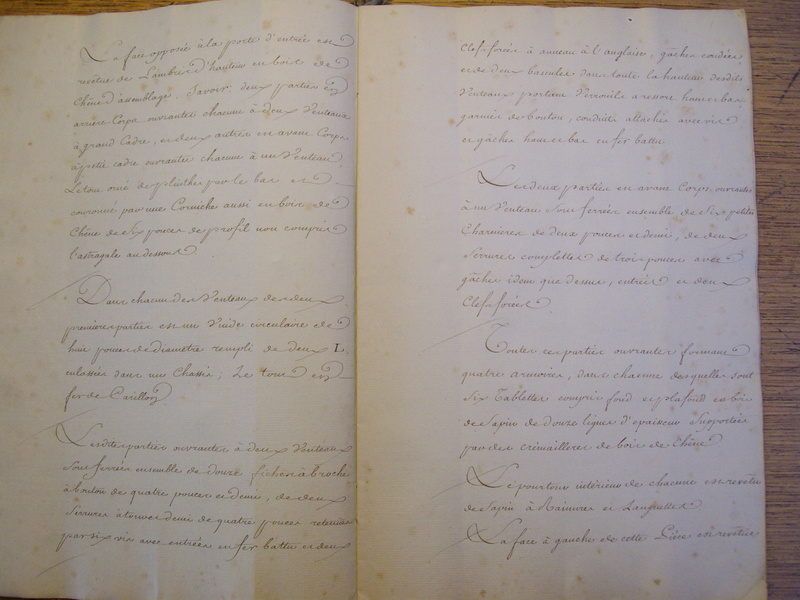 La face opposée à la porte d'entrée est
revêtue de Lambris d'hauteur en bois de
Chêne d'assemblage, Savoir deux parties en
arriere Corps ouvrantes chacune à deux Venteaux
à grand Cadre, et deux autres en avant Corps
à petit cadre ouvrantes chacune à un Venteau,
Le tout orné de plinthes par le bas et
couronné par une Corniche aussi en bois de
Chêne de Six pouces de profil non compris
l'astragale au dessous
Dans chacun des Venteaux des deux
premieres parties est un Vuide circulaire de
huit pouces de diametre rempli de deux
dans un Chassis; Le tout en
fer de Carillon
Lesdites parties ouvrantes à deux Venteaux
Sont ferrées ensemble de douze fiches à broche
à bouton de quatre pouces et demi, de deux
Serrures à tour et demi de quatre pouces retenues
par six vis avec entrées en fer battu et deux
Clefs forées à anneau à l'anglaise, gâches coudées
et de deux bascules dans toute la hauteur desdits
Venteaux portant Verrouils a ressort haut et bas
garnies de bouton, conduits attachés avec vis
et gâches haut et bas en fer battu
Les deux parties en avant Corps ouvrantes
à un Venteau Sont ferrées ensemble de Six petites
Charnieres de deux pouces et demi, de deux
Serrures complettes de trois pouces avec
gâches idem que dessus, entrées et deux
Clefs forées
Toutes ces parties ouvrantes formant
quatre armoires, dans chacune desquelles sont
Six Tablettes compris fond et plafond en bois
de Sapin de douze lignes d'epaisseur Supportées
par des crémailleres de bois de Chêne
Le pourtour intérieur de chacune est revêtu
de Sapin à Rainures et Languettes
La face à gauche de cette Piéce est revêtue